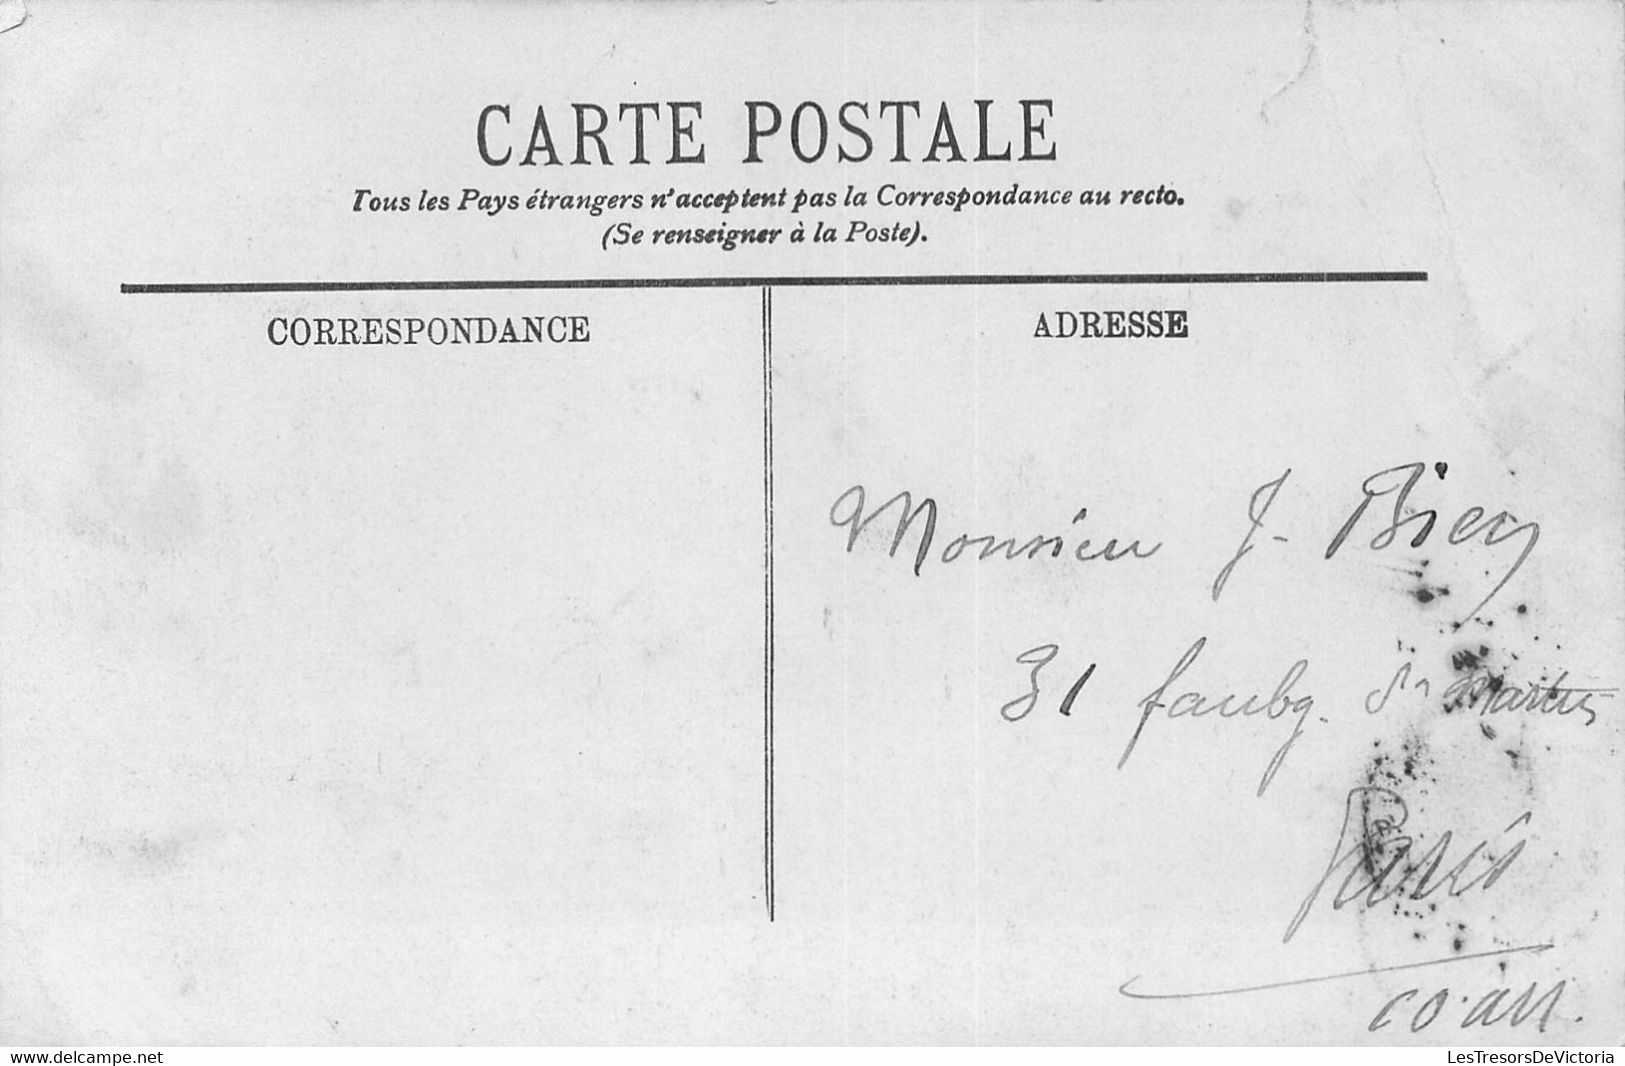 CARTE POSTALE
Tous les Pays étrangers n'acceptent pas la Correspondance au recto.
(Se renseigner à la Poste).
CORRESPONDANCE
ADRESSE
Monsieur J.
31 faubg. St Martin
Paris
delcampe.net
LesTresorsDeVictoria